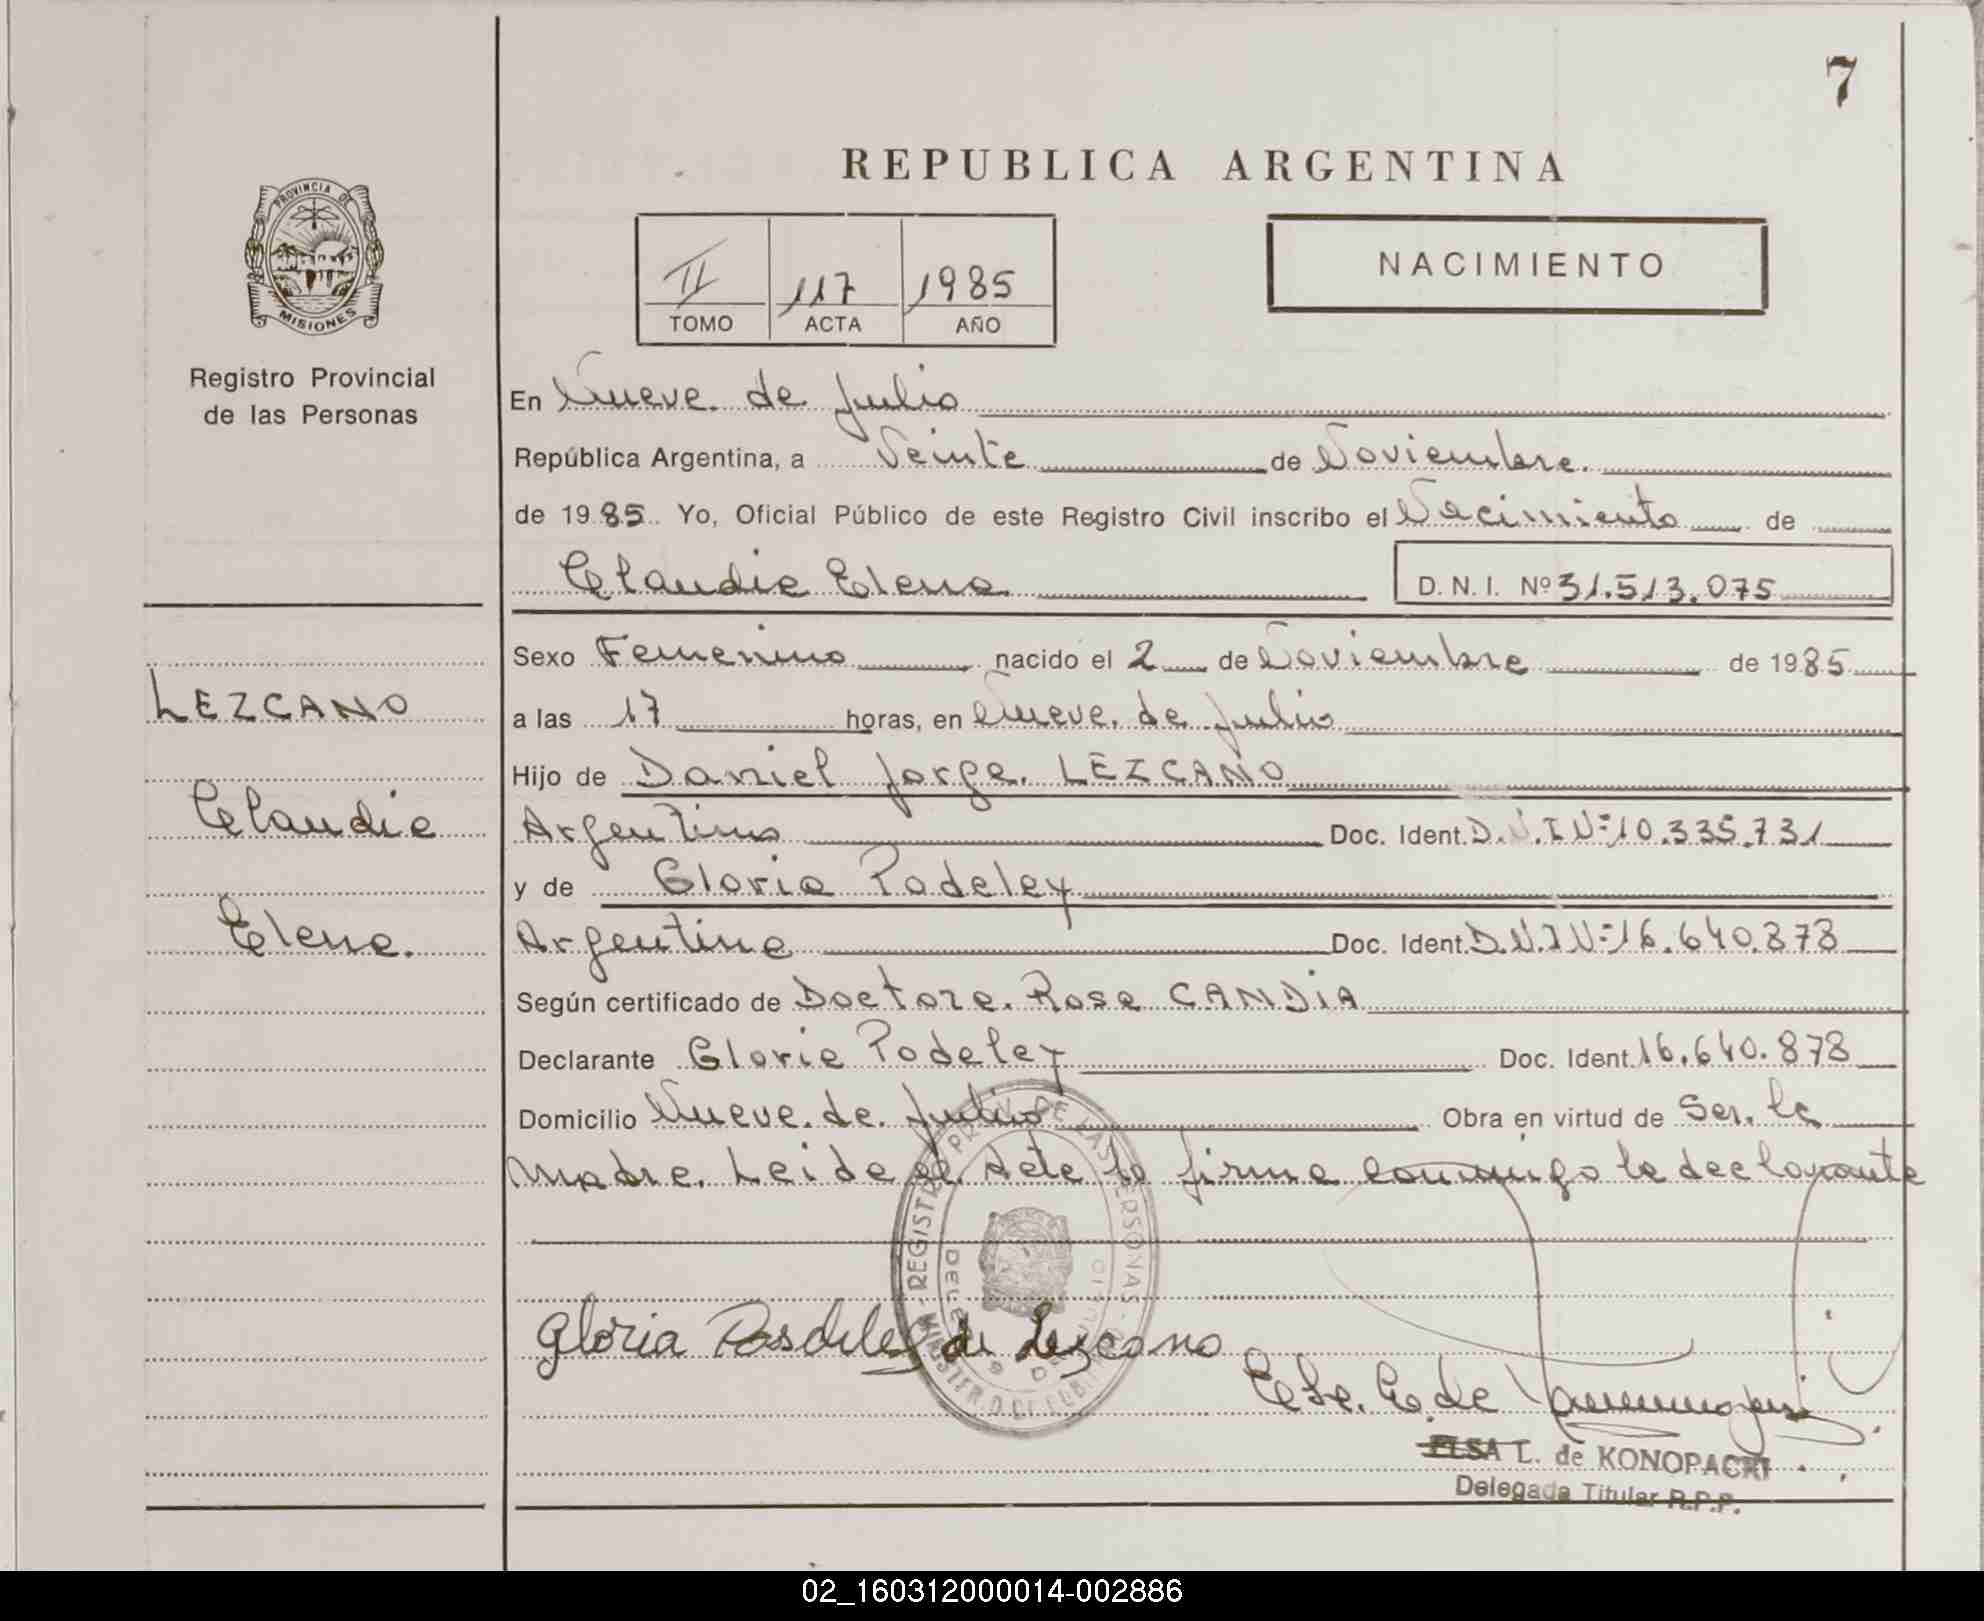 7
REPUBLICA ARGENTINA
PROVINCIA DE
MISIONES
Registro Provincial
de las Personas
II 117 1985
TOMO ACTA AÑO
NACIMIENTO
En Nueve de Julio
República Argentina, a Veinte de Noviembre.
de 1985. Yo, Oficial Público de este Registro Civil inscribo el Nacimiento de
Claudia Elena D. N. I. Nº 31.513.075
Sexo Femenino nacido el 2 de Noviembre de 1985
LEZCANO
a las 17 horas, en Nueve de Julio
Hijo de Daniel Jorge LEZCANO
Claudia
Argentino Doc. Ident. D.N.I Nº 10.335.731
y de Gloria Podeley
Elena.
Argentina Doc. Ident. D.N.I Nº 16.640.878
Según certificado de Doctora Rosa CANDIA
Declarante Gloria Podeley Doc. Ident. 16.640.878
Domicilio Nueve de Julio Obra en virtud de Ser la
Madre. Leida el Acta la firma conmigo la declarante
REGISTRO PROV. DE LAS PERSONAS
Gloria Posdeley de Lezcano
ELSA L. de KONOPACKI
Delegada Titular R.P.P.
02_160312000014-002886